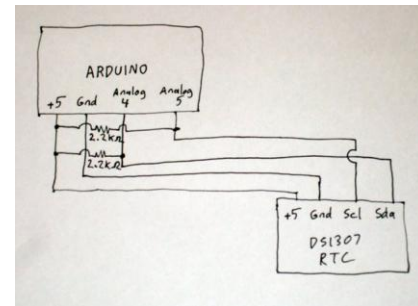 ARDUINO
+5 Gnd Analog 4 Analog 5
2.2kΩ
2.2kΩ
+5 Gnd Scl Sda
DS1307
RTC